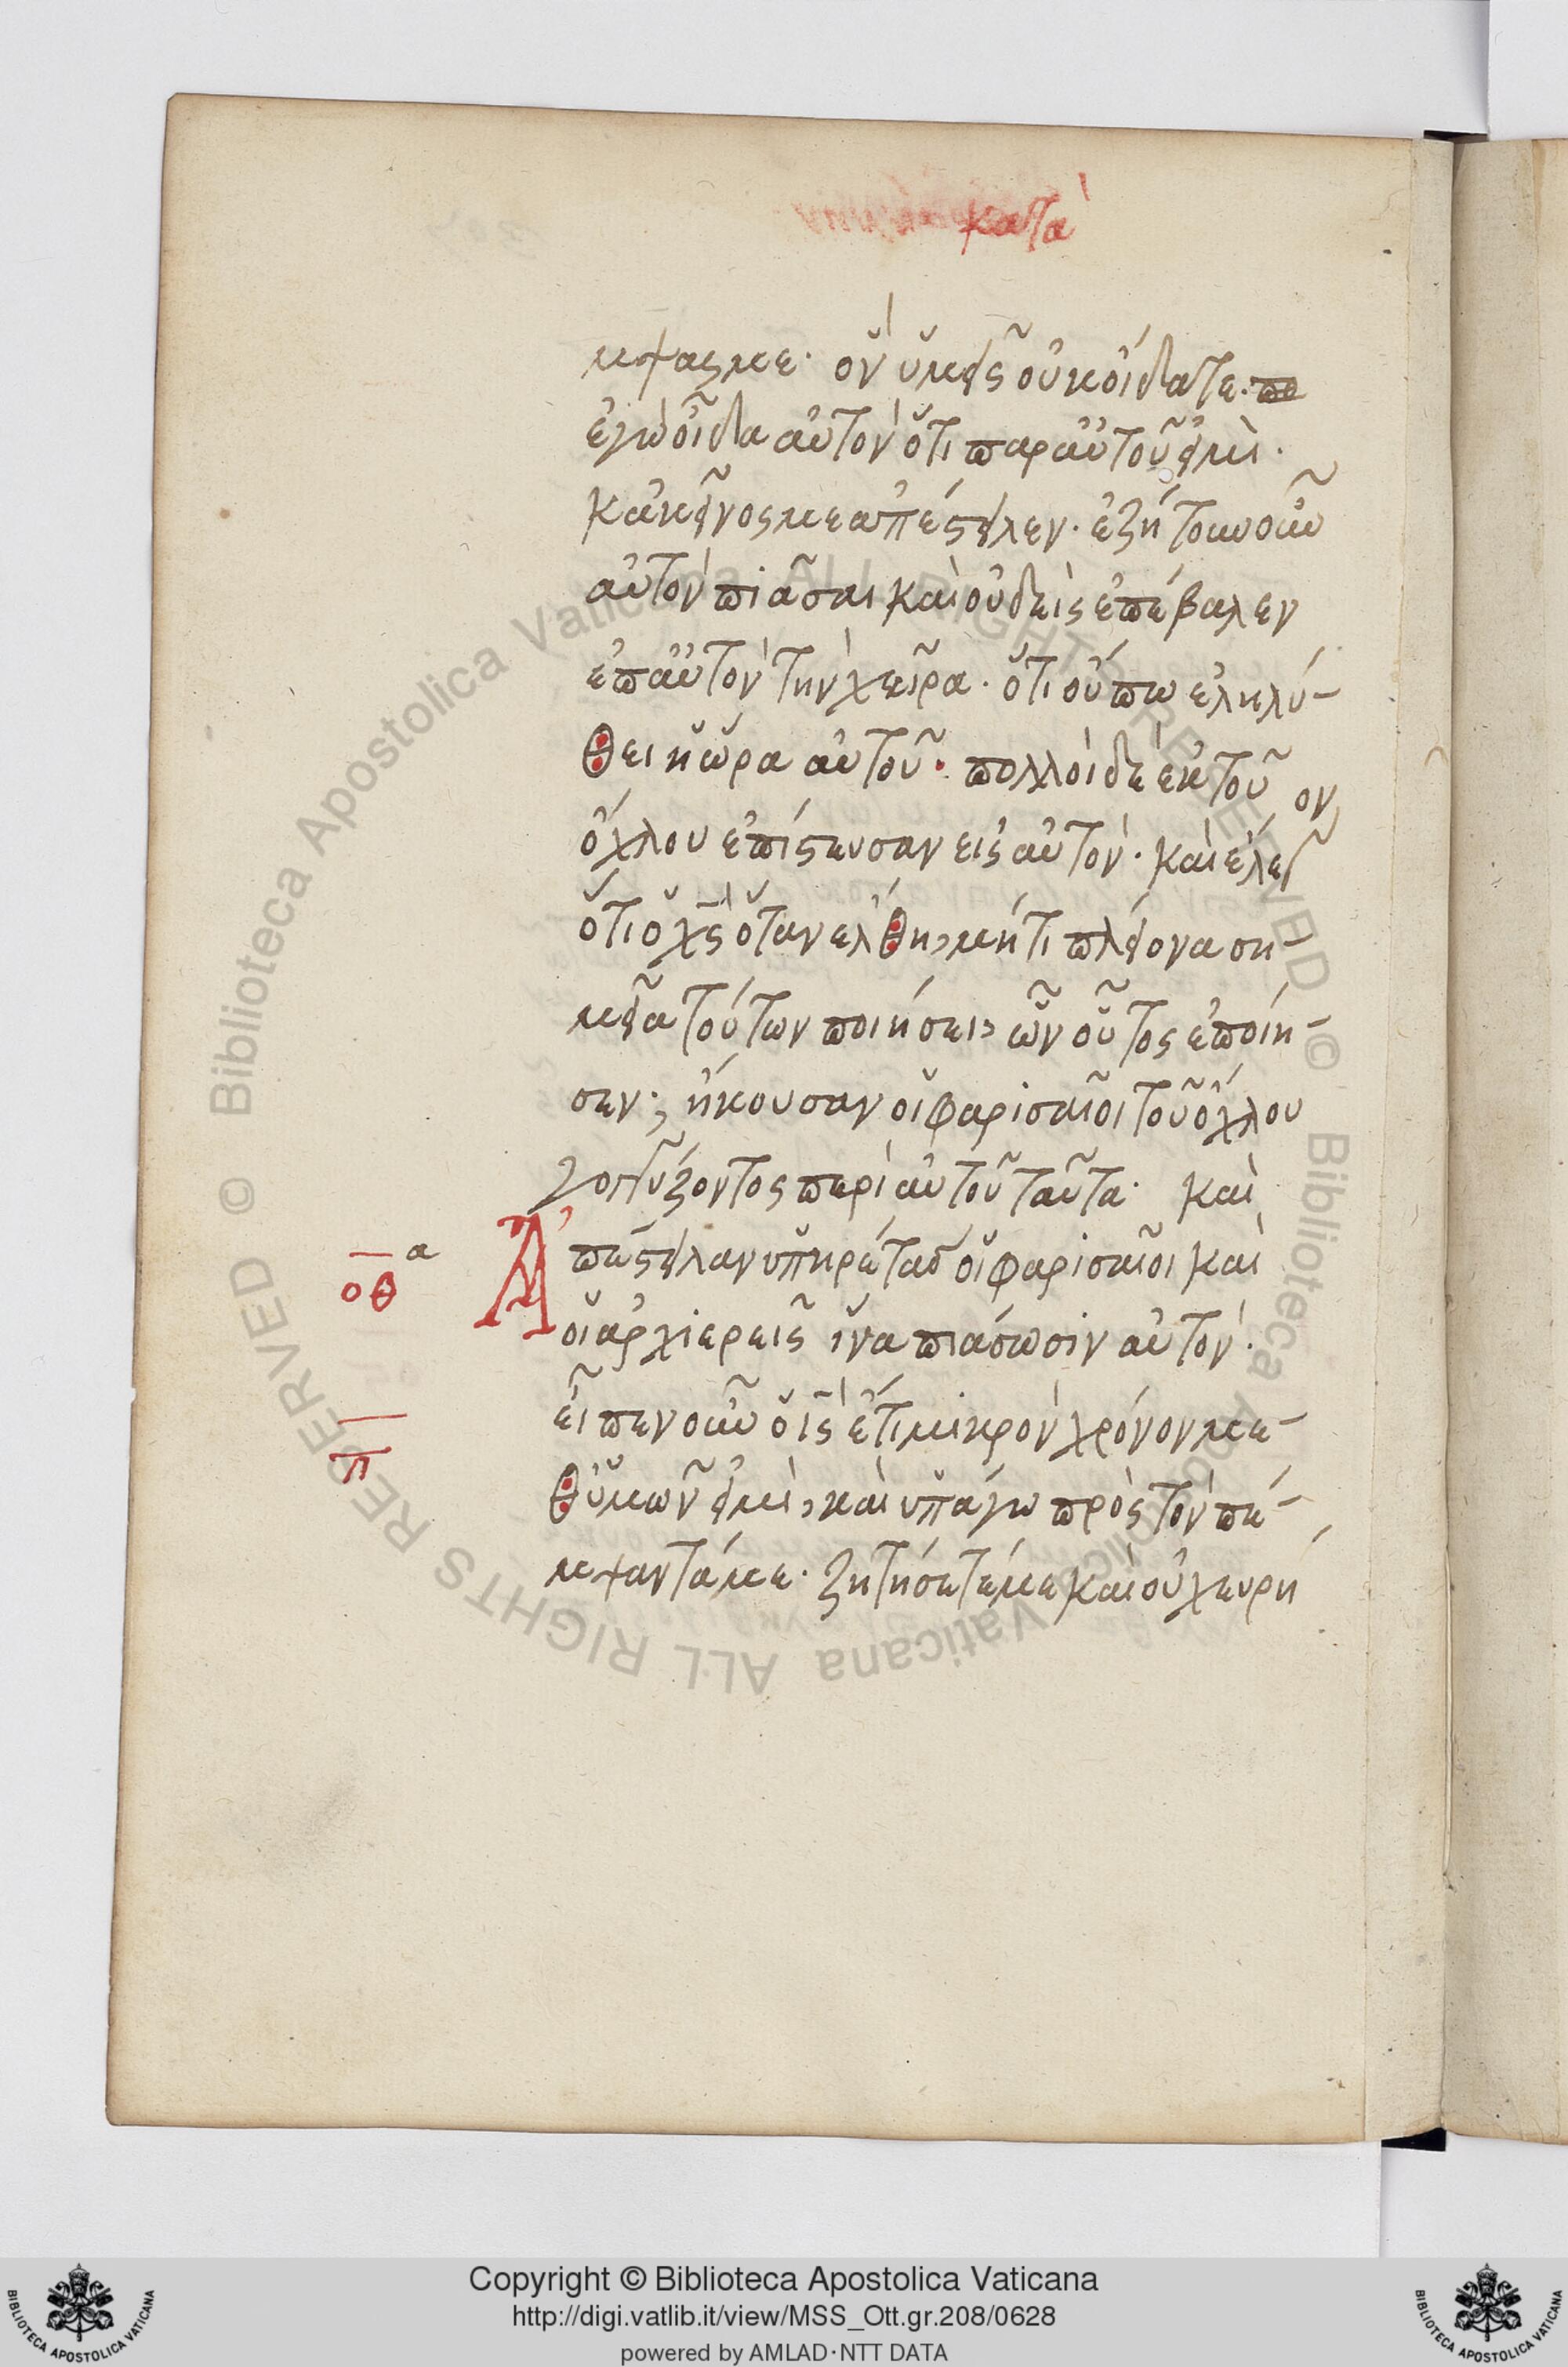 κατὰ
μψας με· ὃν ὑμεῖς οὐκ οἴδατε·
ἐγὼ οἶδα αὐτὸν ὅτι παρ αὐτοῦ εἰμι·
κἀκεῖνός με ἀπέστειλεν· ἐζήτουν οὖν
αὐτὸν πιᾶσαι καὶ οὐδεὶς ἐπέβαλεν
ἐπ αὐτὸν τὴν χεῖρα· ὅτι οὔπω ἐληλύ-
θει ἡ ὥρα αὐτοῦ· πολλοὶ δὲ ἐκ τοῦ
ὄχλου ἐπίστευσαν εἰς αὐτὸν· καὶ ἔλεγον
ὅτι ὁ χς ὅταν ἔλθη, μήτι πλείονα ση-
μεῖα τούτων ποιήσει, ὧν οὗτος ἐποίη-
σεν; ἤκουσαν οἱ φαρισαῖοι τοῦ ὄχλου
γογγύζοντος περὶ αὐτοῦ ταῦτα· καὶ
οθ α
Ἀπέστειλαν ὑπηρέτας οἱ φαρισαῖοι καὶ
οἱ ἀρχιερεῖς ἵνα πιάσωσιν αὐτόν·
π
εἶπεν οὖν ὁ ις ἔτι μικρὸν χρόνον με-
θ ὑμῶν εἰμὶ, καὶ ὑπάγω πρὸς τὸν πέ-
μψαντά με· ζητήσετέ με καὶ οὐχ εὑρή
Copyright © Biblioteca Apostolica Vaticana
http://digi.vatlib.it/view/MSS_Ott.gr.208/0628
powered by AMLAD·NTT DATA
BIBLIOTECA APOSTOLICA VATICANA
BIBLIOTECA APOSTOLICA VATICANA
© Biblioteca Apostolica Vaticana ALL RIGHTS RESERVED © Biblioteca Apostolica Vaticana ALL RIGHTS RESERVED